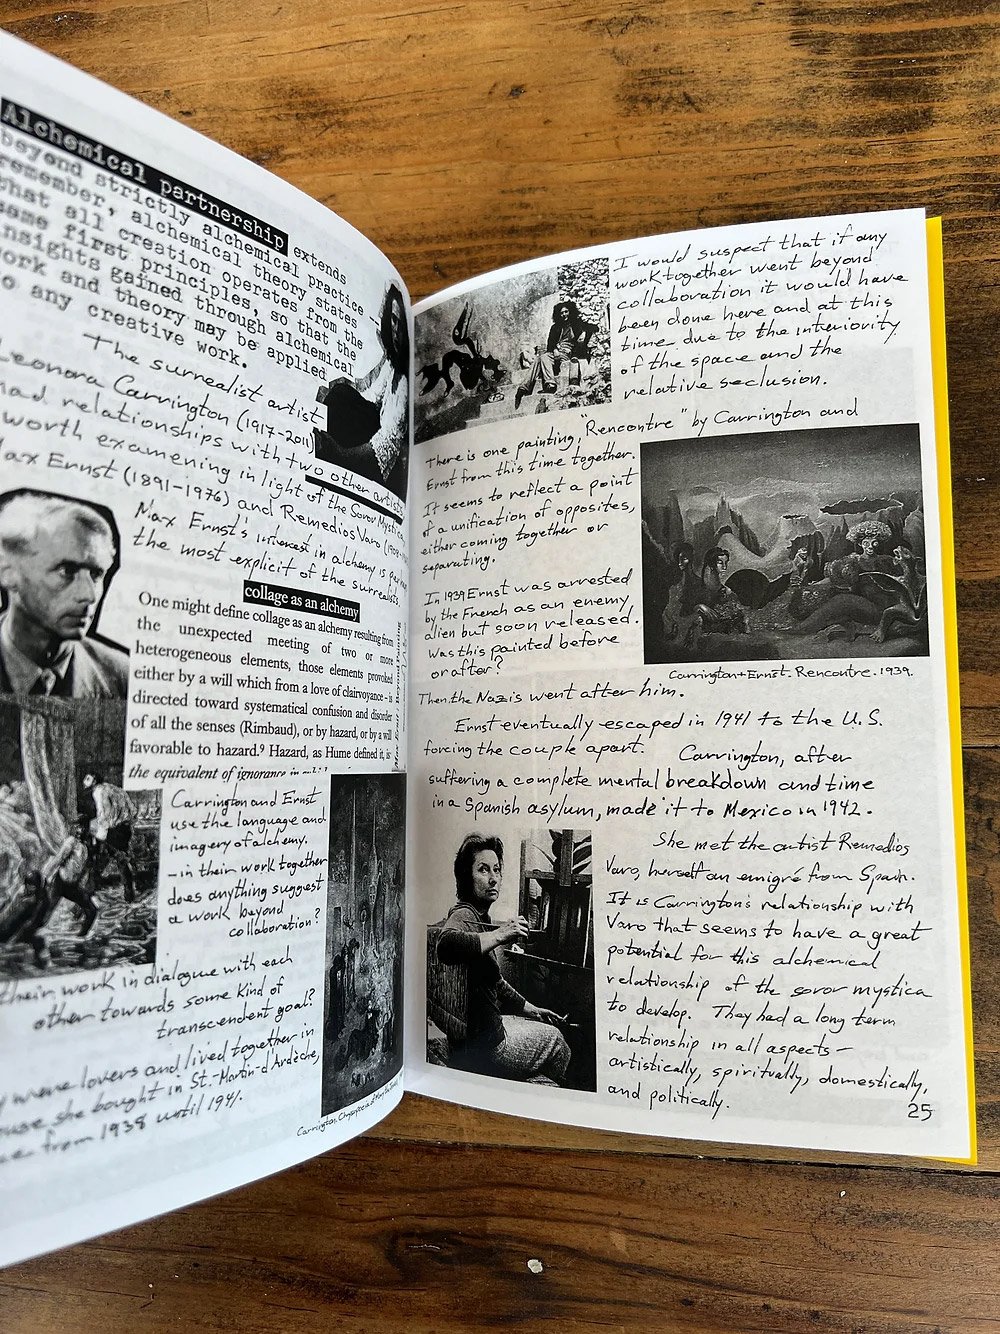 Alchemical partnership extends
beyond strictly alchemical practice —
remember, alchemical theory states
that all creation operates from the
same first principles, so that the
insights gained through alchemical
work and theory may be applied
to any creative work.
The surrealist artist
Leonora Carrington (1917-2011)
had relationships with two other artists
worth examening in light of the Soror Mystica,
Max Ernst (1891-1976) and Remedios Varo
Max Ernst's interest in alchemy is
the most explicit of the surrealists.
collage as an alchemy
One might define collage as an alchemy resulting from
the unexpected meeting of two or more
heterogeneous elements, those elements provoked
either by a will which from a love of clairvoyance - is
directed toward systematical confusion and disorder
of all the senses (Rimbaud), or by hazard, or by a will
favorable to hazard.9 Hazard, as Hume defined it, is
the equivalent of ignorance in
Max Ernst: Beyond Painting
Carrington and Ernst
use the language and
imagery of alchemy.
– in their work together
does anything suggest
a work beyond
collaboration?
their work in dialogue with each
other towards some kind of
transcendent goal?
were lovers and lived together in
she bought in St.-Martin-d'Ardèche,
from 1938 until 1941.
Carrington.
I would suspect that if any
work together went beyond
collaboration it would have
been done here and at this
time due to the interiority
of the space and the
relative seclusion.
There is one painting, "Rencontre" by Carrington and
Ernst from this time together.
It seems to reflect a point
of a unification of opposites,
either coming together or
separating.
In 1939 Ernst was arrested
by the French as an enemy
alien but soon released.
Was this painted before
or after?
Carrington + Ernst. Rencontre. 1939.
Then the Nazis went after him.
Ernst eventually escaped in 1941 to the U.S.
forcing the couple apart. Carrington, after
suffering a complete mental breakdown and time
in a Spanish asylum, made it to Mexico in 1942.
She met the artist Remedios
Varo, herself an emigré from Spain.
It is Carrington's relationship with
Varo that seems to have a great
potential for this alchemical
relationship of the soror mystica
to develop. They had a long term
relationship in all aspects –
artistically, spiritually, domestically,
and politically.
25